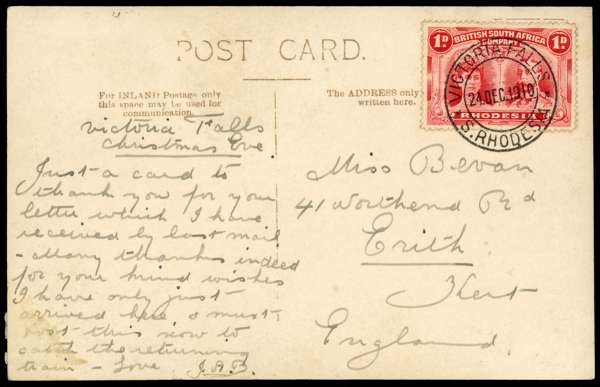 POST CARD.
For INLAND Postage only
this space may be used for
communication.
The ADDRESS only
written here.
1D BRITISH SOUTH AFRICA 1D
COMPANY
RHODESIA
VICTORIA FALLS
24 DEC 1910
S. RHODESIA
Victoria Falls
Christmas Eve
Just a card to
thank you for your
letter which I have
received by last mail
- Many thanks indeed
for your kind wishes
I have only just
arrived here & must
post this now to
catch the returning
train - Love J.A.B.
Miss Bevan
41 Northend Rd
Erith
Kent
England.